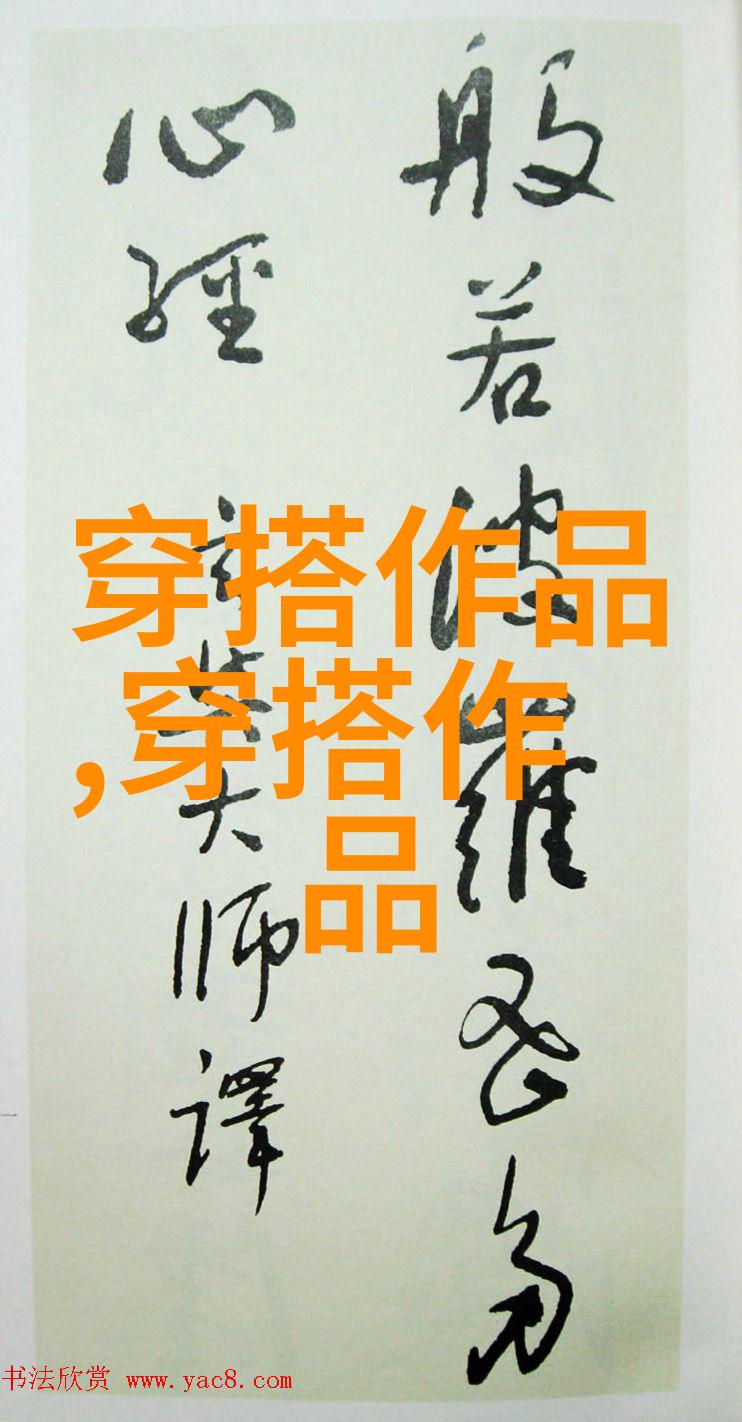 般若波羅蜜多
心經 玄奘大師譯
穿搭作品
,穿搭作
品
书法欣赏 www.yac8.com